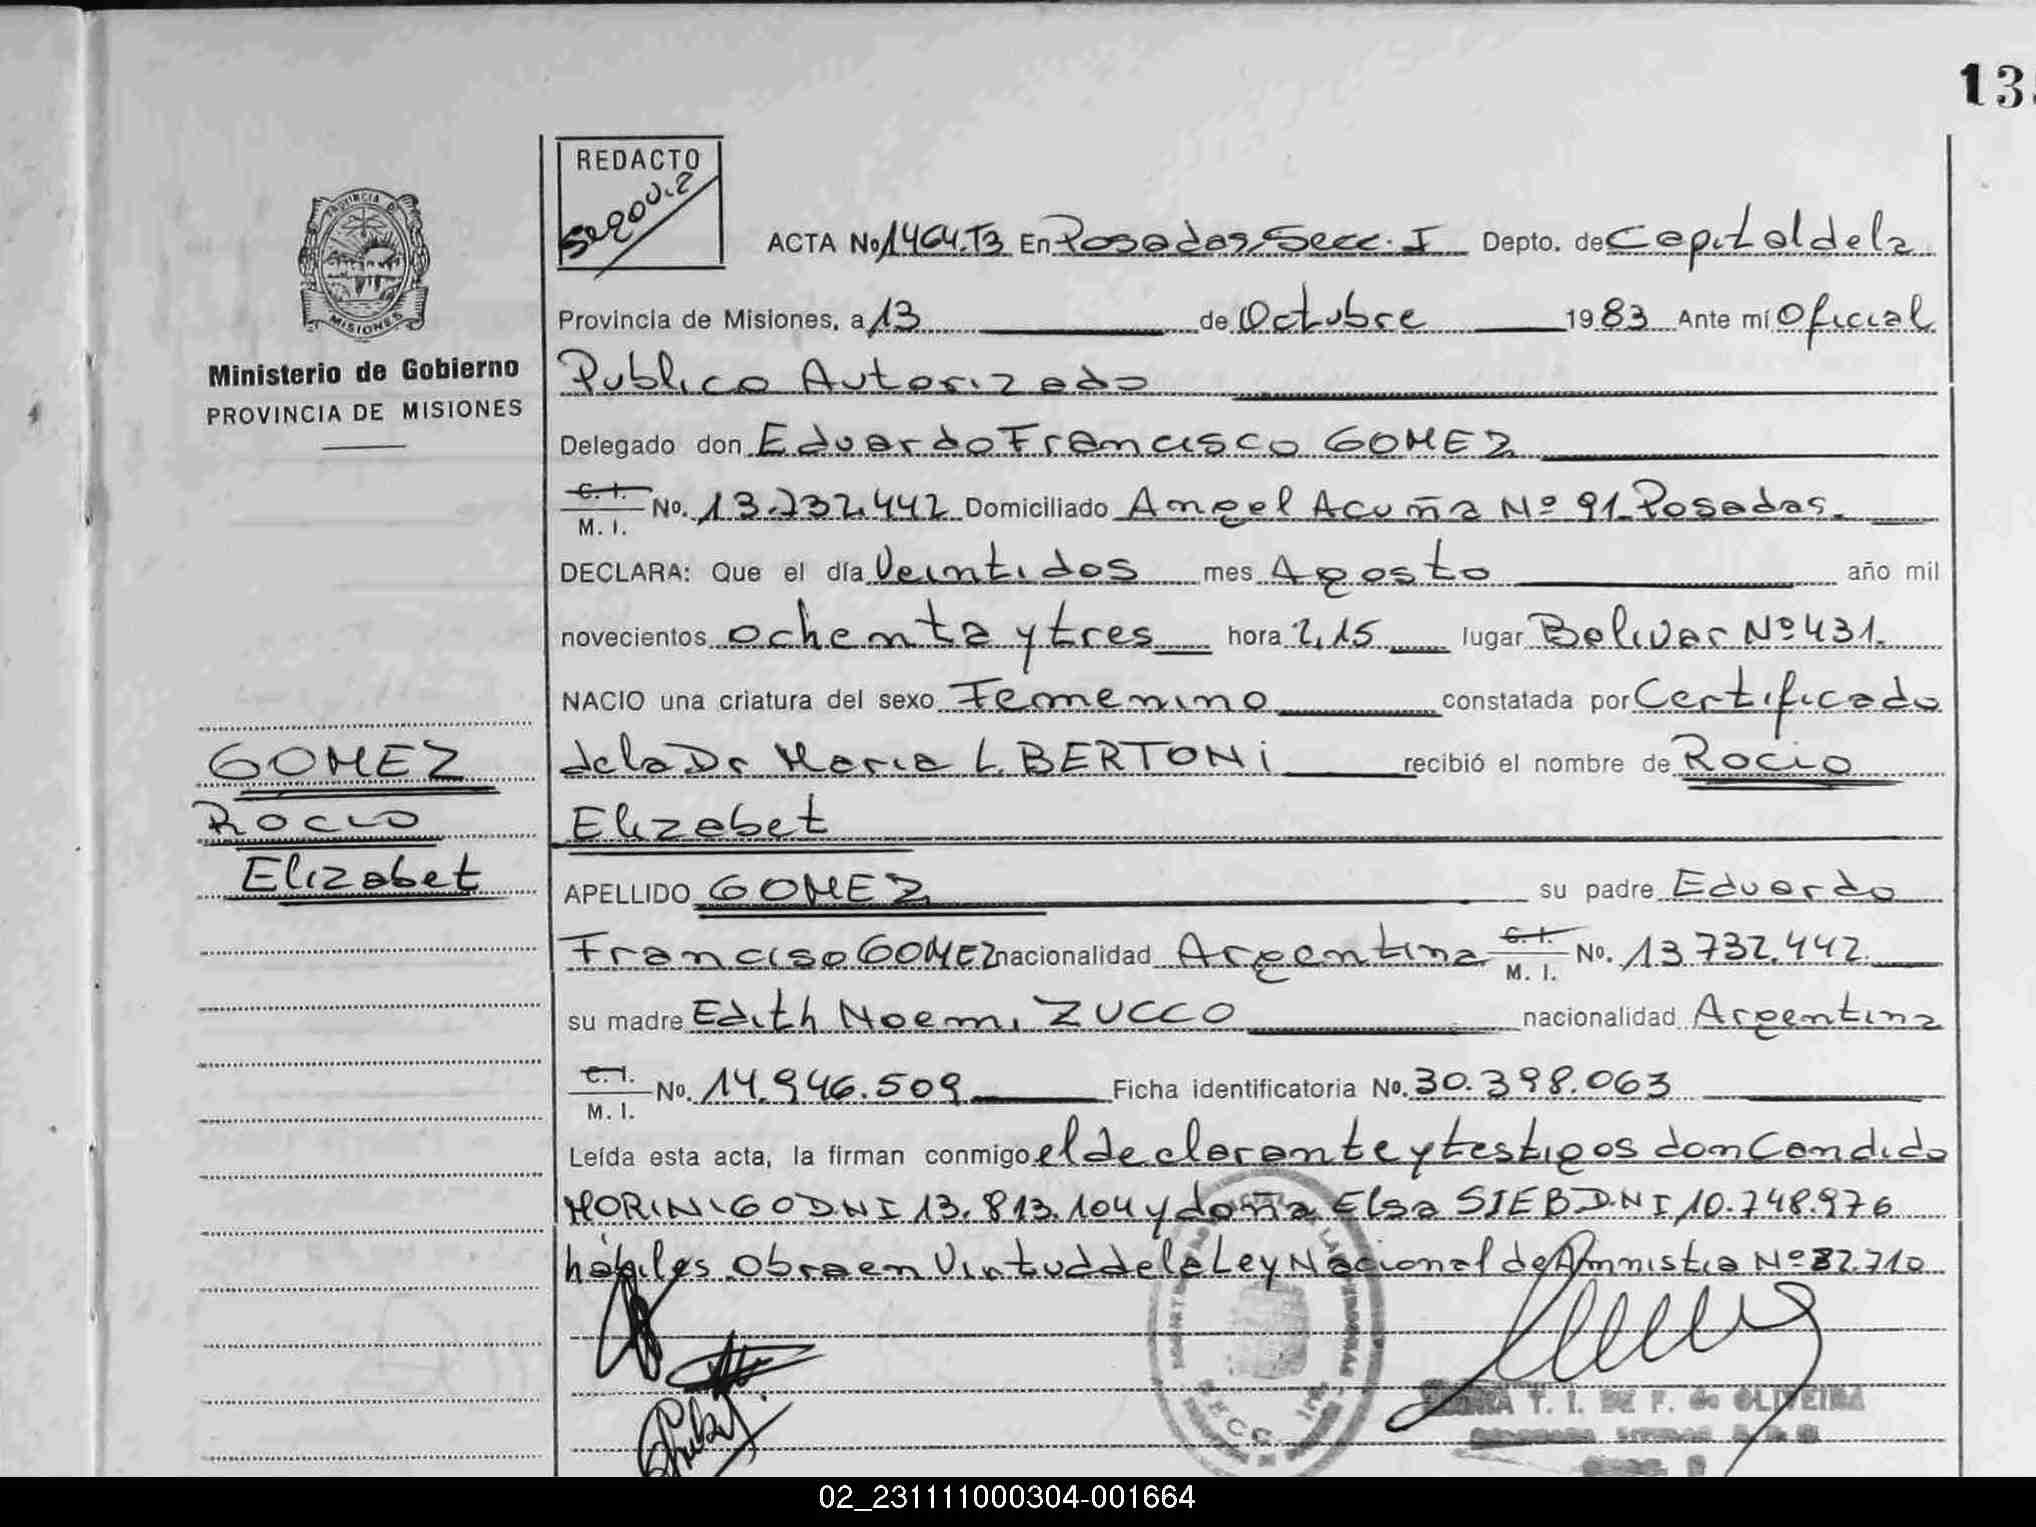 135
REDACTO
PROVINCIA DE
MISIONES
Ministerio de Gobierno
PROVINCIA DE MISIONES
ACTA No 1464.T3 En Posadas, Secc. I Depto. de Capital de la
Provincia de Misiones, a 13 de Octubre 1983 Ante mí Oficial
Publico Autorizado
Delegado don Eduardo Francisco GOMEZ
C. I. M. I. No. 13.732.442 Domiciliado Angel Acuña Nº 91 Posadas.
DECLARA: Que el día Veintidos mes Agosto año mil
novecientos ochenta y tres hora 2,15 lugar Bolivar Nº 431.
NACIO una criatura del sexo Femenino constatada por Certificado
GOMEZ
de la Dr Maria L. BERTONI recibió el nombre de Rocio
Rocio
Elizabet
Elizabet
APELLIDO GOMEZ su padre Eduardo
Franciso GOMEZ nacionalidad Argentina C. I. M. I. No. 13.732.442
su madre Edith Noemi ZUCCO nacionalidad Argentina
C. I. M. I. No. 14.946.509 Ficha identificatoria No. 30.398.063
Leída esta acta, la firman conmigo el declarante y testigos don Candido
MORINIGO DNI 13.813.104 y doña Elsa SIEB DNI 10.748.976
hábiles. Obra en Vintud de la Ley Nacional de Amnistia Nº 22.710
T. I. DE F. de OLIVEIRA
02_231111000304-001664